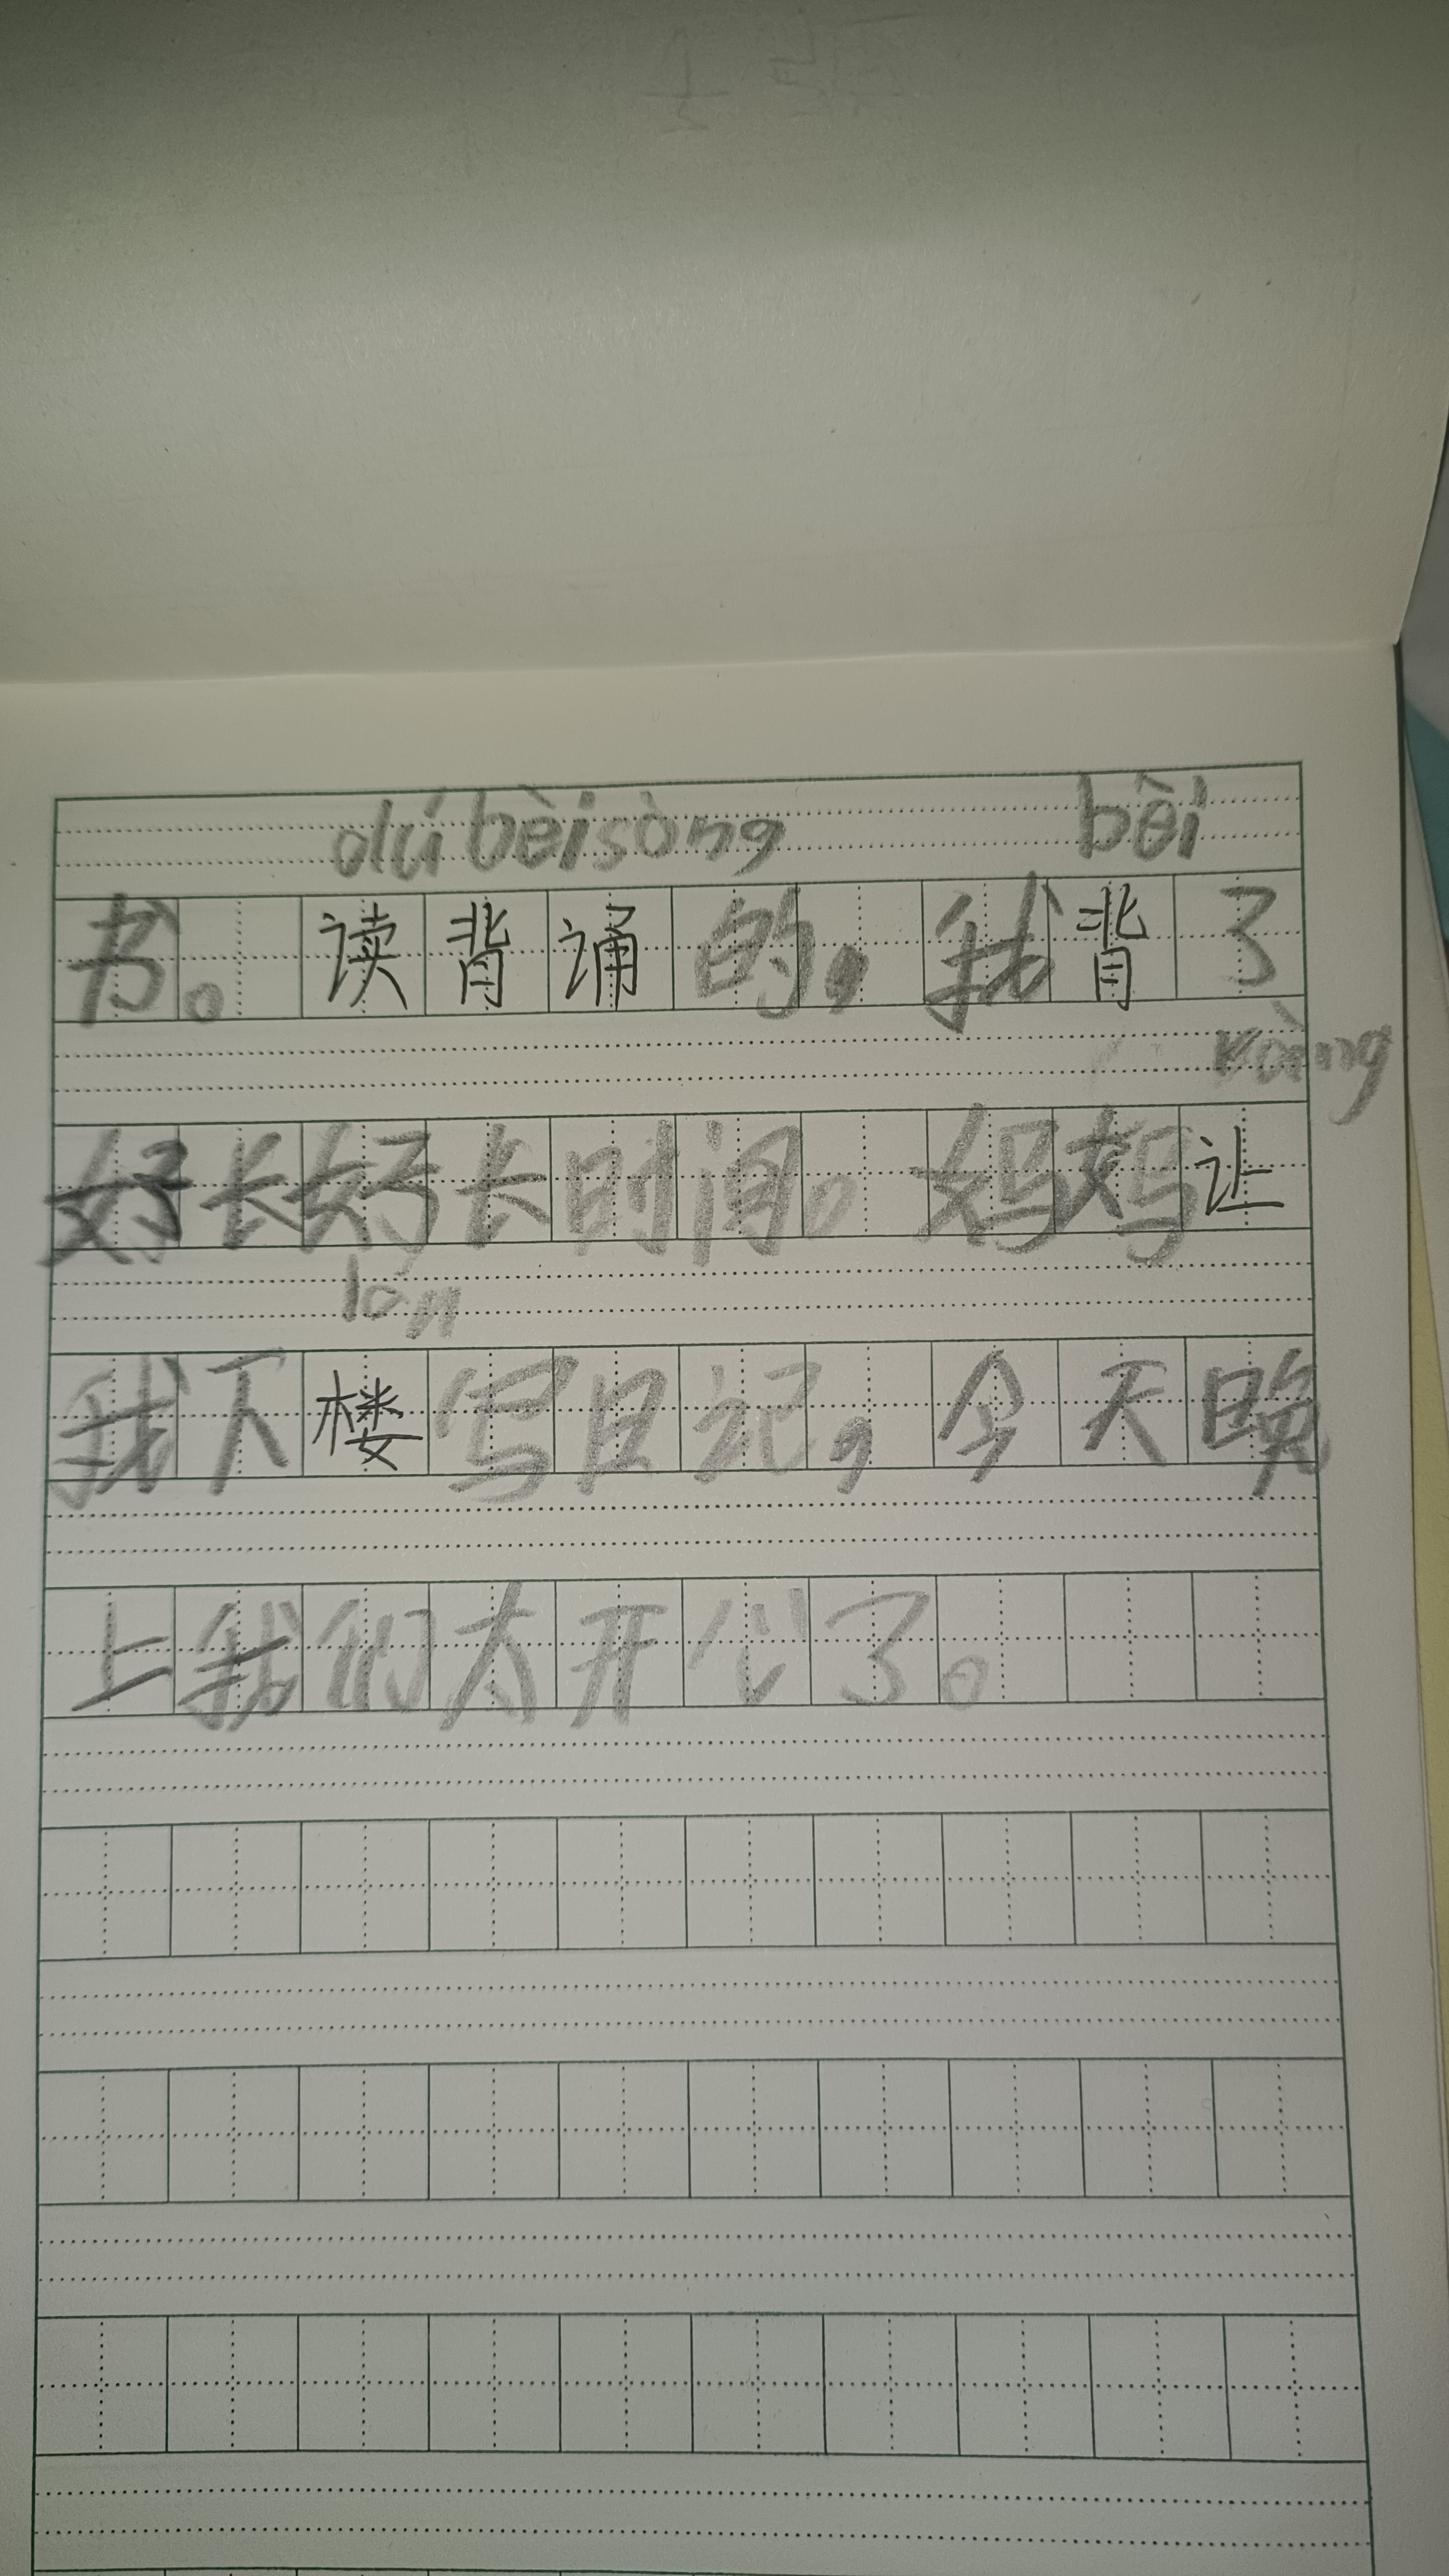 dú bèi sòng bēi
书。读背诵的，我背了
ràng
好长好长时间。妈妈让
lón
我下楼写日记，今天晚
上我们太开心了。